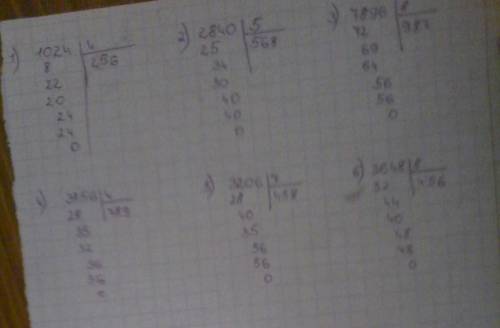 1) 1024 4
8 256
22
20
24
24
0
2) 2840 5
25 568
34
30
40
40
0
3) 7896 8
72 987
69
64
56
56
0
4) 3156 4
28 789
35
32
36
36
0
5) 3206 7
28 458
40
35
56
56
0
6) 3648 8
32 456
44
40
48
48
0